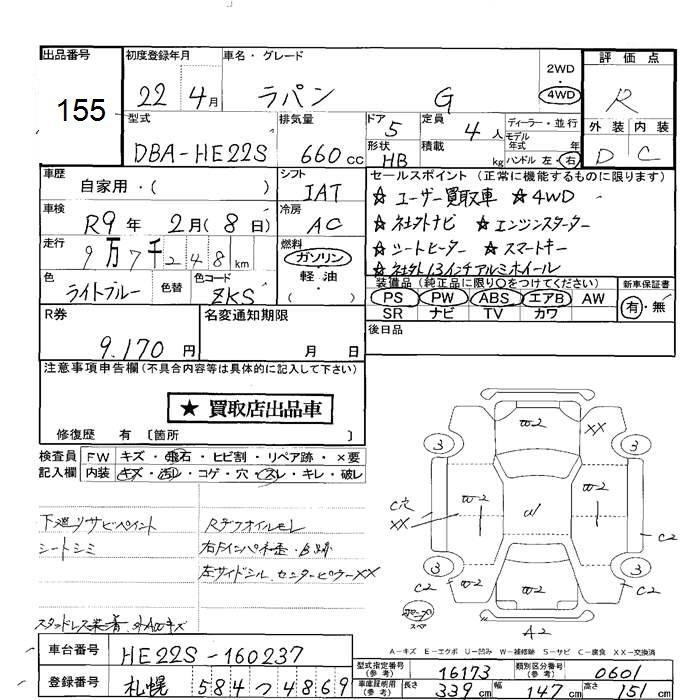 出品番号 初度登録年月 車名・グレード 2WD・4WD 評価点
155 22年 4月 ラパン G R
型式 排気量 ドア 定員 ディーラー・並行 外装 内装
DBA-HE22S 660cc 5 4人 モデル年式 年 D C
形状 HB 積載 kg ハンドル 左・右
車歴 自家用・( ) シフト IAT セールスポイント (正常に機能するものに限ります)
車検 R9年 2月(8日) 冷房 AC ★ユーザー買取車 ★4WD
走行 9万7千248km 燃料 ★社外ナビ ★エンジンスターター
ガソリン ★シートヒーター ★スマートキー
軽油 ★社外13インチアルミホイール
・( )
色 ライトブルー 色替 色コード ZKS 装備品 (純正品に限り○をつけてください) 新車保証書
PS PW ABS エアB AW 有・無
SR ナビ TV カワ
R券 9,170円 名変通知期限 月 日 後日品
注意事項申告欄(不具合内容等は具体的に記入して下さい)
★ 買取店出品車
修復歴 有 〔箇所 〕
検査員 FW キズ・飛石・ヒビ割・リペア跡・×要
記入欄 内装 キズ・汚れ・コゲ・穴・スレ・キレ・破レ
下廻りサビペイント Rデフオイルモレ
シートシミ
左サイドシル、センターピラーXX
W-2 XX
3 3
C穴 XX W-2 U1 W-2 C2
3 3
C2 W-2 W-2 C2
スペア A2
A-キズ E-エクボ U-凹み W-補修跡 S-サビ C-腐食 XX-交換済
車台番号 HE22S-160237 型式指定番号(参考) 16173 類別区分番号(参考) 0601
登録番号 札幌 584つ4869 車庫証明用(参考) 長さ 339cm 幅 147cm 高さ 151cm